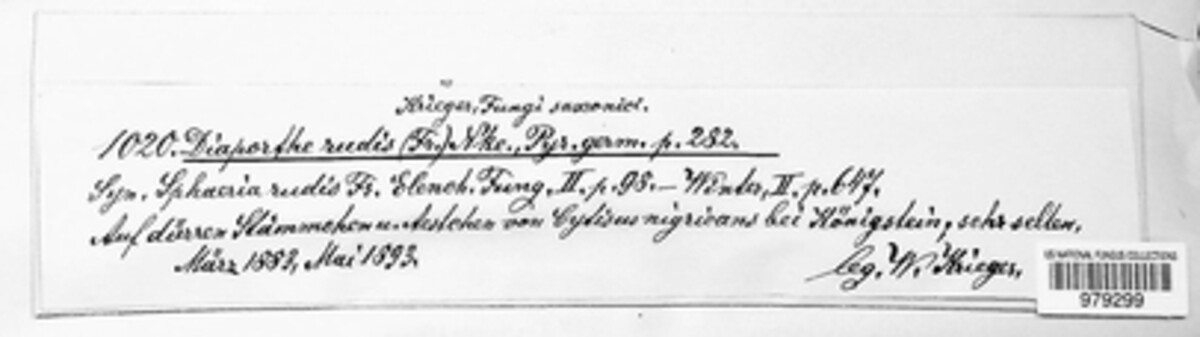 Krieger, Fungi saxonici.
1020. Diaporthe rudis (Fr.) Nke., Pyr. germ. p. 282.
Syn. Sphaeria rudis Fr. Elench. Fung. II. p. 98. – Winter, II. p. 647.
Auf dürren Stämmchen u. Aestchen von Cytisus nigricans bei Königstein, sehr selten.
März 1882, Mai 1893.
leg. W. Krieger.
US NATIONAL FUNGUS COLLECTIONS
979299